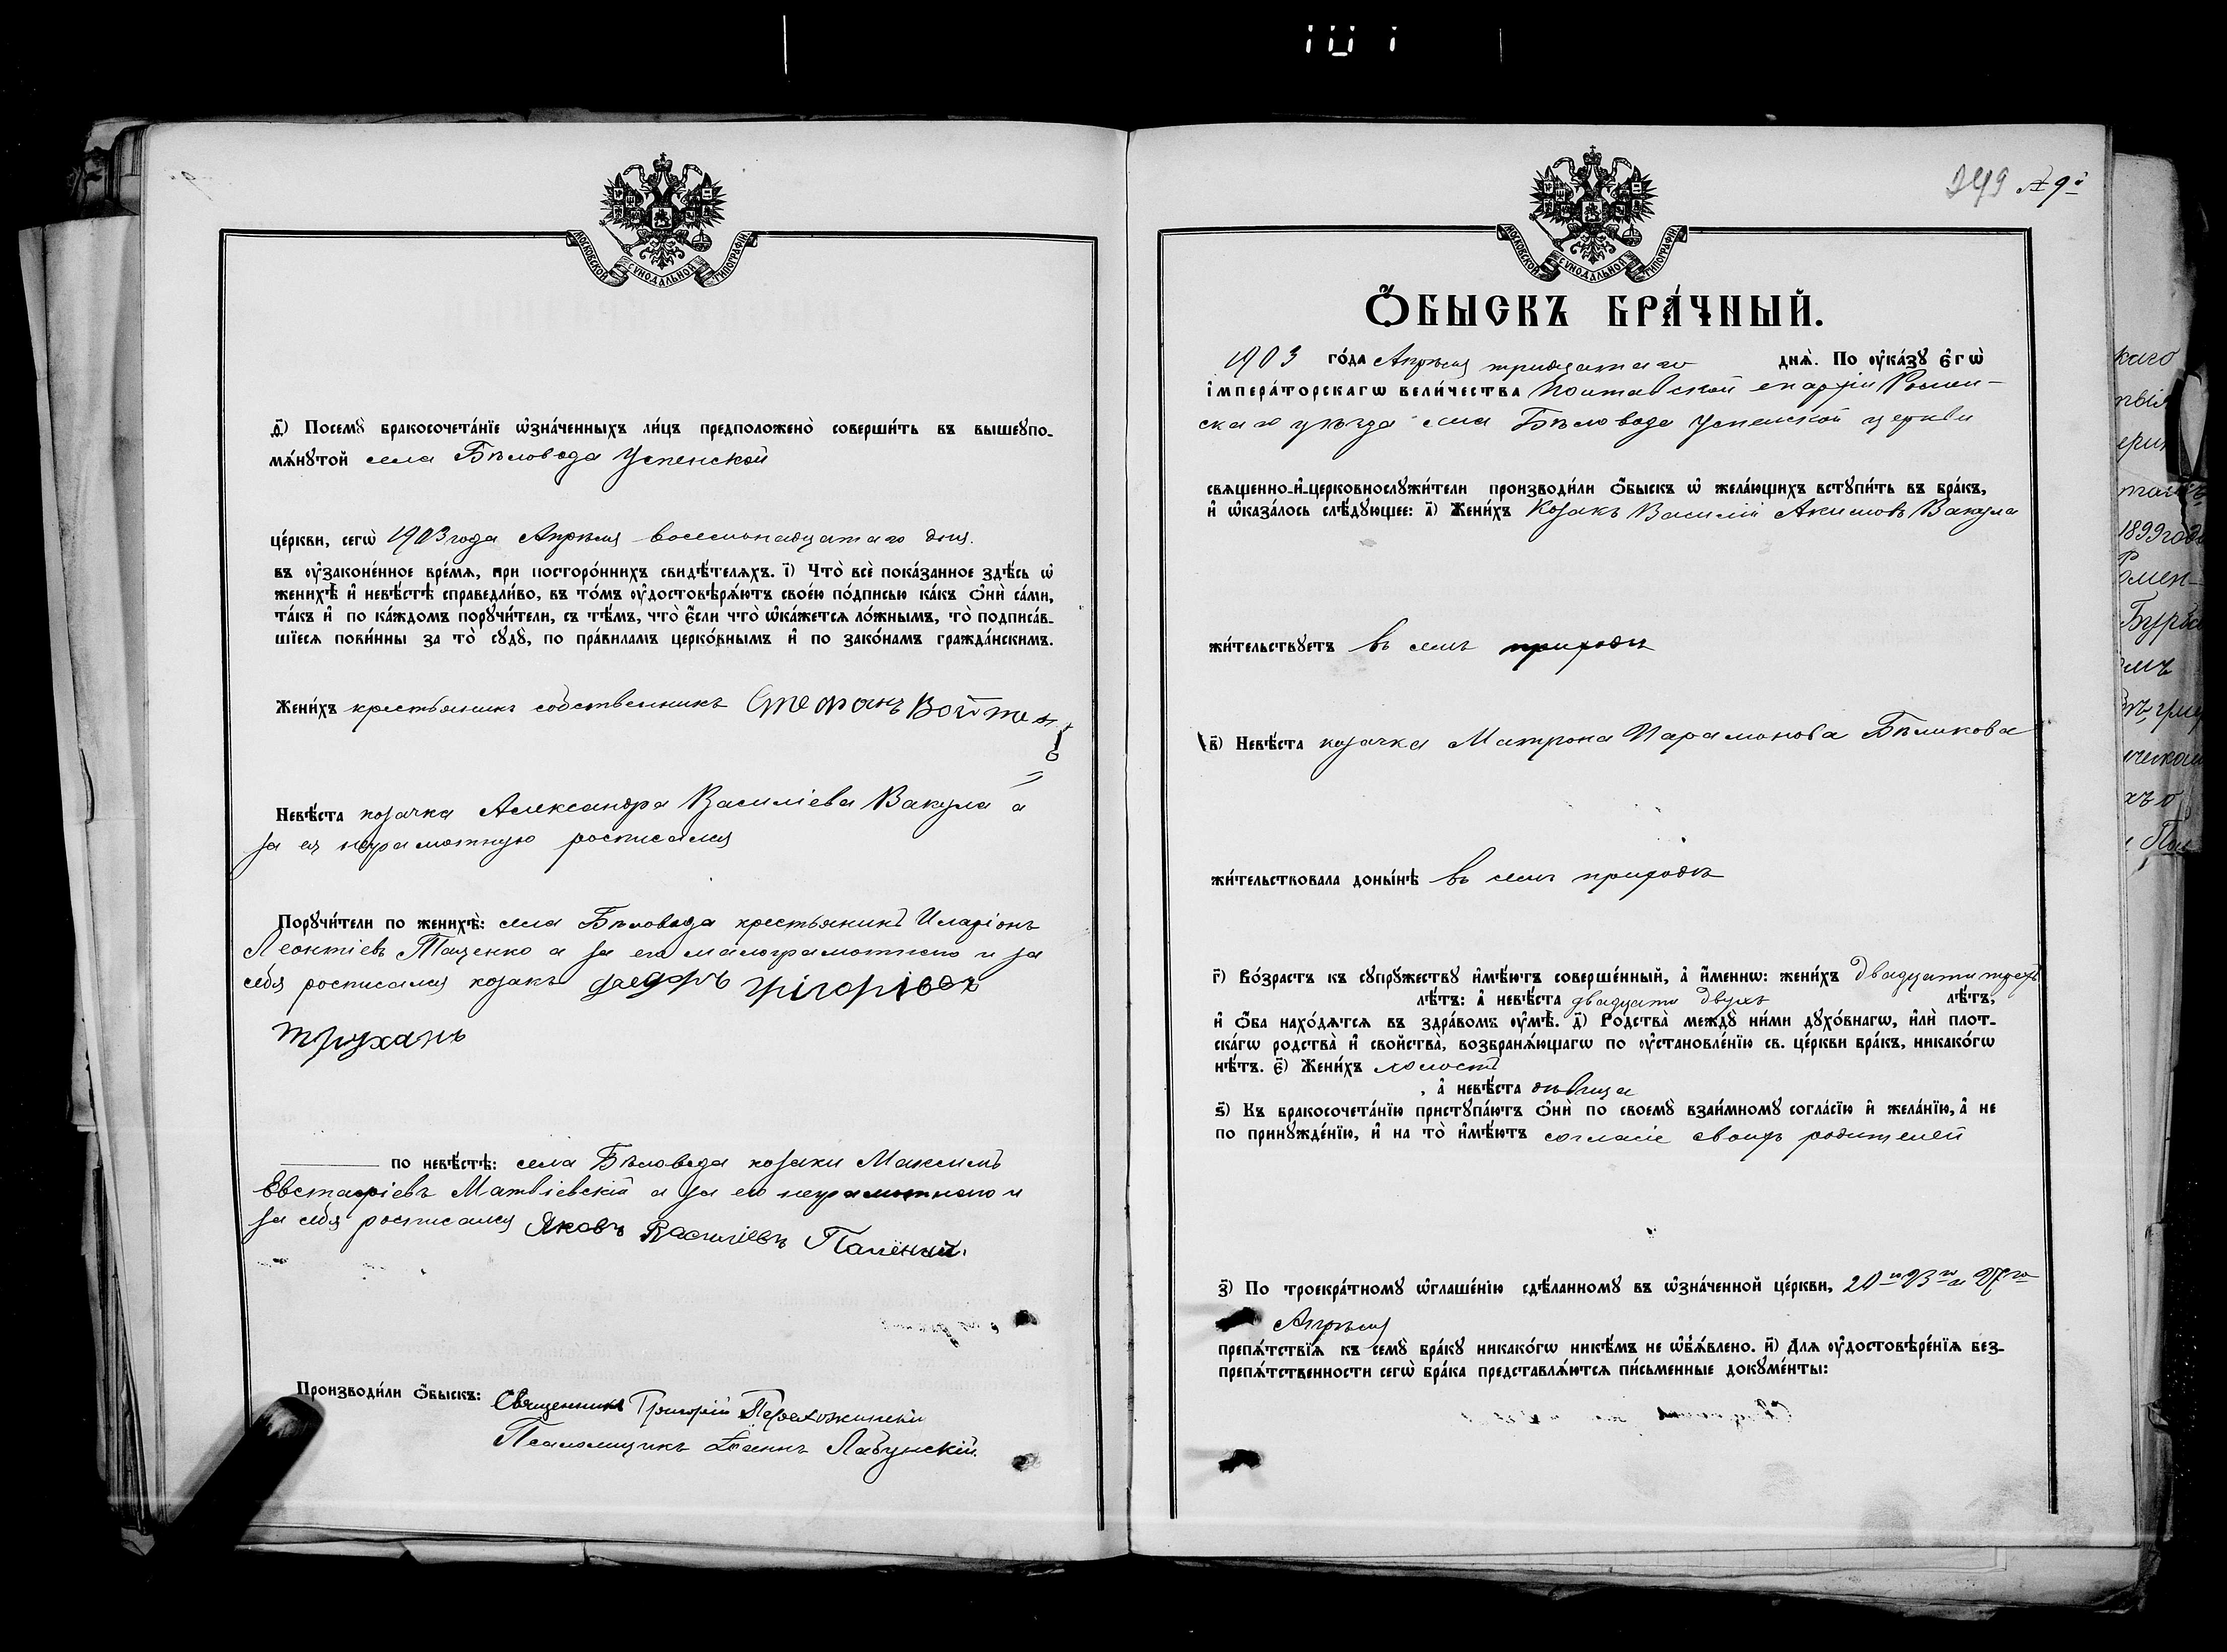 МОСКОВСКОЙ СѴНОДАЛЬНОЙ ТИПОГРАФІИ
д҃) Посемꙋ̀ бракосочета́нїе ѡ҆зна́ченныхъ ли́цъ предположено̀ соверши́ть въ вышеꙋпо-
мѧ́нꙋтой села Бѣловода Успенской
це́ркви, сегѡ̀ 1903 года Апрѣля восемнадцатаго дня.
въ ᲂу҆законе́нное вре́мѧ, при посторо́ннихъ свидѣ́телѧхъ. і҃) Что̀ всѐ пока́занное здѣ́сь ѡ҆
женихѣ̀ и҆ невѣ́стѣ справедли́во, въ то́мъ ᲂу҆достовѣрѧ́ютъ свое́ю по́дписью ка́къ ѻ҆нѝ са́ми,
та́къ и҆ по ка́ждомъ порꙋчи́тели, съ тѣ́мъ, что̀ є҆́сли что̀ ѡ҆ка́жется ло́жнымъ, то̀ подписа́в-
шїеся пови́нны за то̀ сꙋдꙋ̀, по пра́виламъ церко́внымъ и҆ по зако́намъ гражда́нскимъ.
Жени́хъ крестьянинъ собственникъ Стефанъ Войтен
Невѣ́ста козачка Александра Василіева Вакула а
за ея неграмотную росписался
Порꙋчи́тели по женихѣ̀: села Бѣловода крестьянинъ Иларіонъ
Леонтіевъ Тащенко а за его малограмотного и за
себя росписался козакъ Федоръ Григоріевъ
Трухань
по невѣ́стѣ: села Бѣловода козаки Максимъ
Евстафіевъ Матвіевскій а за его неграмотного и
за себя росписался Яковъ Василіевъ
Производи́ли ѻ҆́быскъ: Священникъ Григорій
Псаломщикъ Іоаннъ Лабунскій.
249 № 9й
МОСКОВСКОЙ СѴНОДАЛЬНОЙ ТИПОГРАФІИ
Ѻ҆БЫСКЪ БРА́ЧНЫЙ.
1903 го́да Апрѣля тридцатаго днѧ̀. По ᲂу҆ка́зꙋ є҆гѡ̀
і҆мпера́торскагѡ вели́чества Полтавской епархіи Ромен-
скаго уѣзда села Бѣловода Успенской церкви
свѧщенно-и҆-церковнослꙋжи́тели производи́ли ѻ҆́быскъ ѡ҆ жела́ющихъ встꙋпи́ть въ бра́къ,
и҆ ѡ҆каза́лось слѣ́дꙋющее: а҃) Жени́хъ Козакъ Василій Акимовъ Вакула
жи́тельствꙋетъ въ семъ приходѣ
в҃) Невѣ́ста козачка Матрона Парамонова Бѣликова
жи́тельствовала доны́нѣ въ семъ приходѣ
г҃) Во́зрастъ къ сꙋпрꙋ́жествꙋ и҆мѣ́ютъ соверше́нный, а҆ и҆́меннѡ: жени́хъ двадцати трехъ
лѣ́тъ: а҆ невѣ́ста двадцати двухъ лѣ́тъ,
и҆ ѻ҆́ба нахо́дѧтся въ здра́вомъ ᲂу҆мѣ̀. д҃) Ро́дства междꙋ̀ ни́ми дꙋхо́внагѡ, и҆лѝ плот-
ска́гѡ родства̀ и҆ свойства̀, возбранѧ́ющагѡ по ᲂу҆становле́нїю св. це́ркви бра́къ, никако́гѡ
нѣ́тъ. є҃) Жени́хъ холостъ
, а҆ невѣ́ста дѣвица
ѕ҃) Къ бракосочета́нїю пристꙋпа́ютъ ѻ҆нѝ по своемꙋ̀ взаи́мномꙋ согла́сїю и҆ жела́нїю, а҆ не
по принꙋжде́нїю, и҆ на то̀ и҆мѣ́ютъ согласіе своихъ родителей
з҃) По троекра́тномꙋ ѡ҆глаше́нїю сдѣ́ланномꙋ въ ѡ҆зна́ченной це́ркви, 20го 23го и 27го
Апрѣля
препѧ́тствїѧ къ семꙋ̀ бра́кꙋ никако́гѡ никѣ́мъ не ѡ҆б̾ѧ́влено. и҃) Длѧ ᲂу҆достовѣре́нїѧ без-
препѧ́тственности сегѡ̀ бра́ка представлѧ́ются пи́сьменные докꙋме́нты:
1899 года